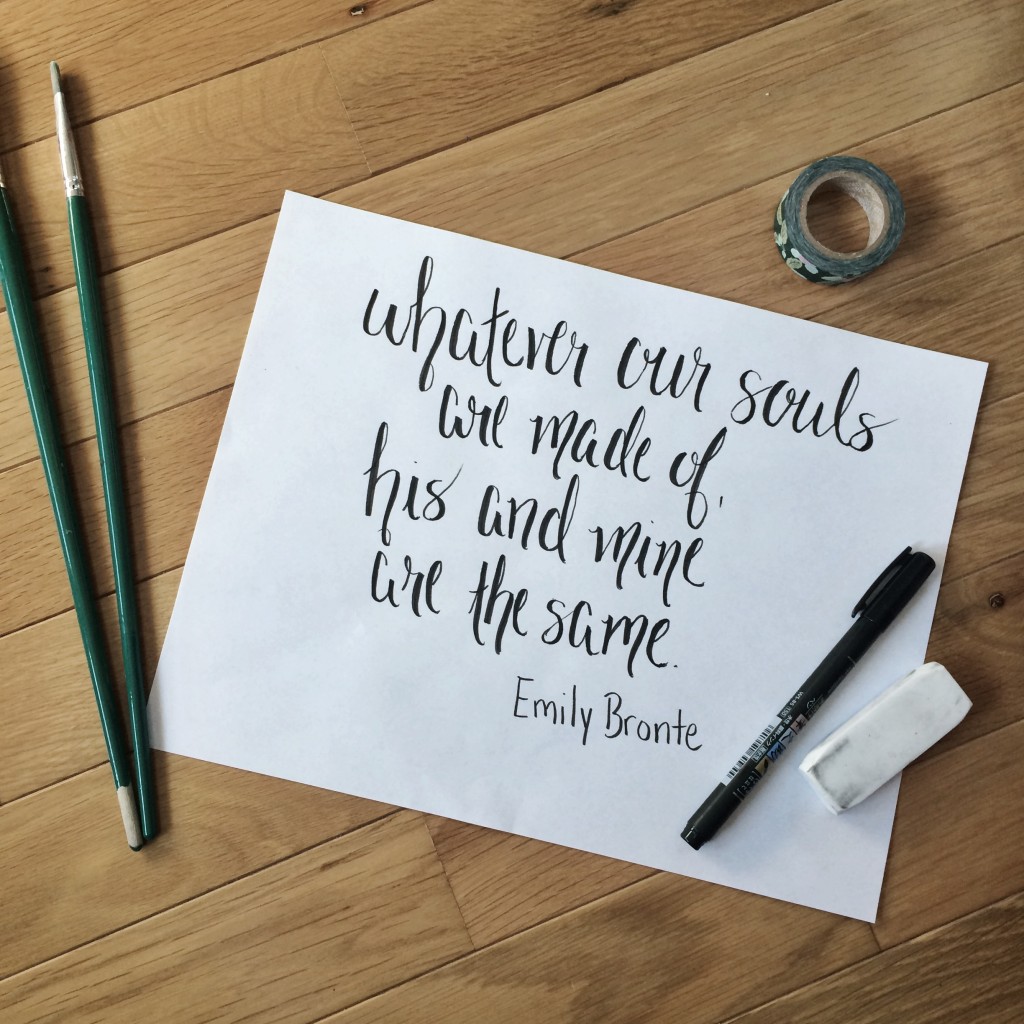 whatever our souls
are made of,
his and mine
are the same.
Emily Bronte